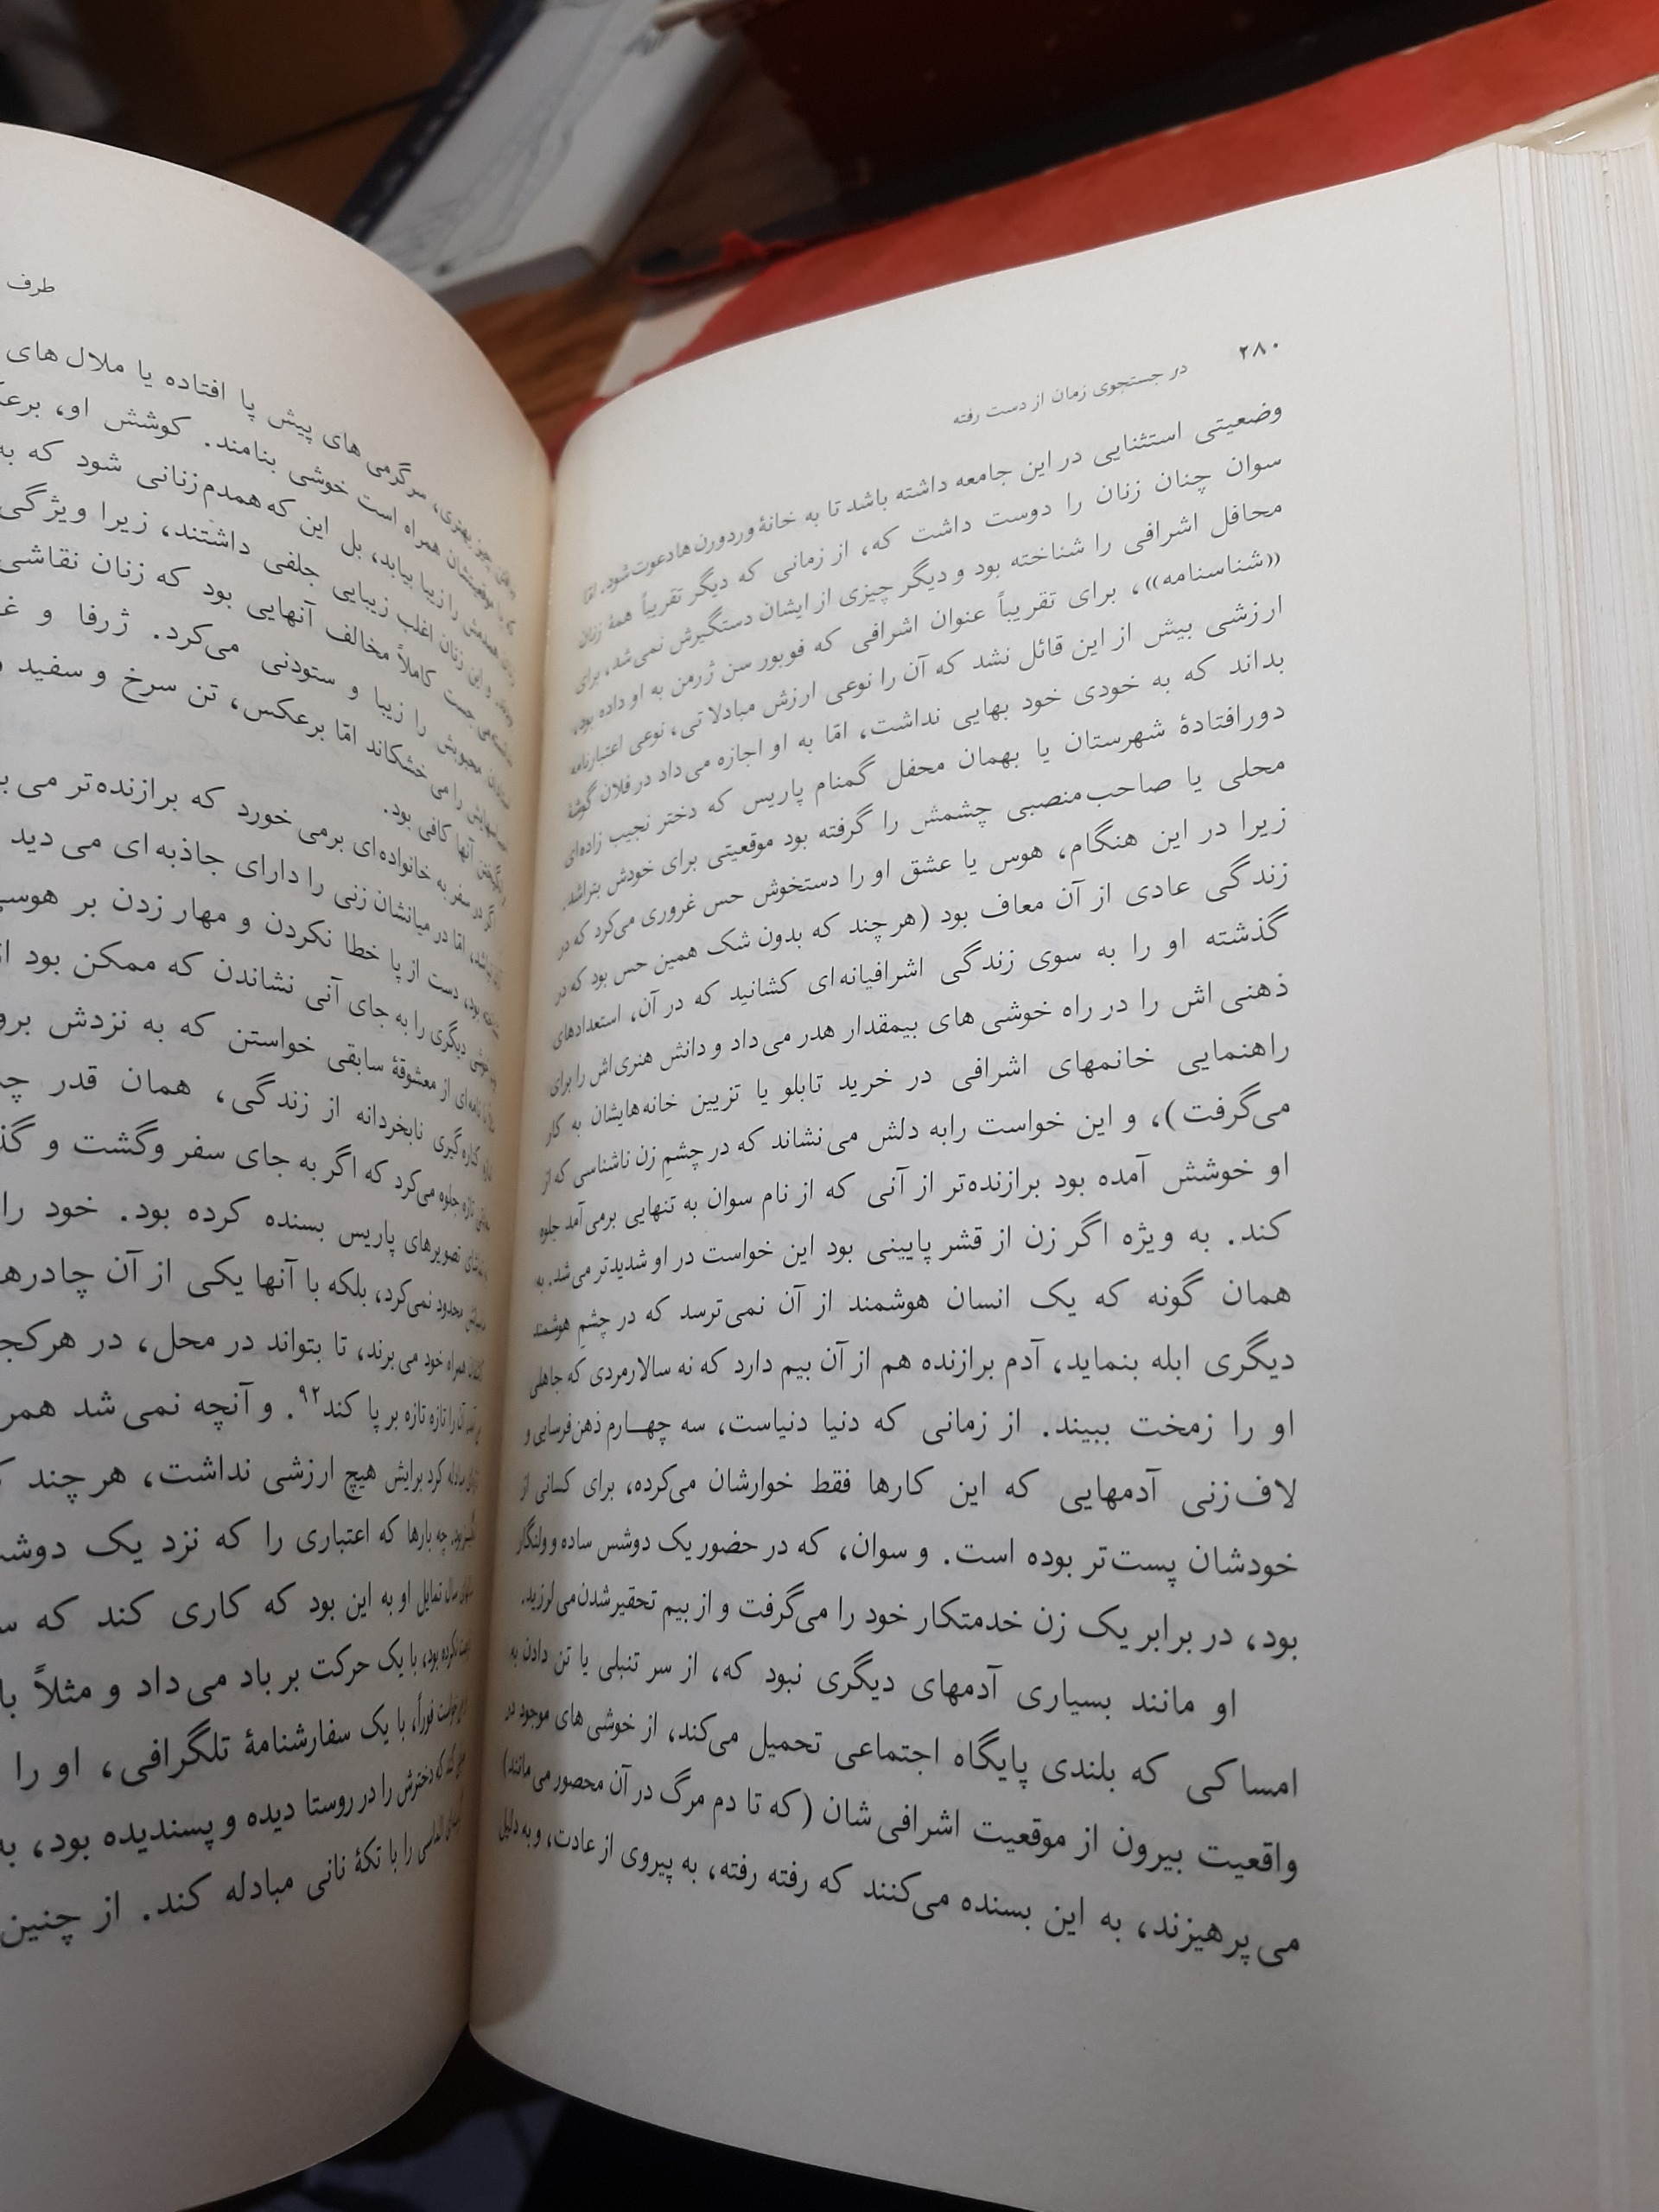 ۲۸۰
در جستجوی زمان از دست رفته
وضعیتی استثنایی در این جامعه داشته باشد تا به خانهٔ وردورن ها دعوت شود. امّا
سوان چنان زنان را دوست داشت که، از زمانی که دیگر تقریباً همهٔ زنان
محافل اشرافی را شناخته بود و دیگر چیزی از ایشان دستگیرش نمی شد، برای
«شناسنامه»، برای تقریباً عنوان اشرافی که فوبور سن ژرمن به او داده بود،
ارزشی بیش از این قائل نشد که آن را نوعی ارزش مبادلا تی، نوعی اعتبارنامه
بداند که به خودی خود بهایی نداشت، امّا به او اجازه می داد در فلان گوشهٔ
دورافتادهٔ شهرستان یا بهمان محفل گمنام پاریس که دختر نجیب زاده‌ای
محلی یا صاحب‌منصبی چشمش را گرفته بود موقعیتی برای خودش بتراشد.
زیرا در این هنگام، هوس یا عشق او را دستخوش حس غروری می‌کرد که در
زندگی عادی از آن معاف بود (هر چند که بدون شک همین حس بود که در
گذشته او را به سوی زندگی اشرافیانه‌ای کشانید که در آن، استعدادهای
ذهنی اش را در راه خوشی های بیمقدار هدر می داد و دانش هنری‌اش را برای
راهنمایی خانمهای اشرافی در خرید تابلو یا تزیین خانه‌هایشان به کار
می‌گرفت)، و این خواست رابه دلش می نشاند که در چشمِ زن ناشناسی که از
او خوشش آمده بود برازنده‌تر از آنی که از نام سوان به تنهایی برمی‌آمد جلوه
کند. به ویژه اگر زن از قشر پایینی بود این خواست در او شدیدتر می‌شد. به
همان گونه که یک انسان هوشمند از آن نمی‌ترسد که در چشم هوشمند
دیگری ابله بنماید، آدم برازنده هم از آن بیم دارد که نه سالارمردی که جاهلی
او را زمخت ببیند. از زمانی که دنیا دنیاست، سه چهارم ذهن‌فرسایی و
لاف‌زنی آدمهایی که این کارها فقط خوارشان می‌کرده، برای کسانی از
خودشان پست‌تر بوده است. و سوان، که در حضور یک دوشس ساده و ولنگار
بود، در برابر یک زن خدمتکار خود را می‌گرفت و از بیم تحقیر شدن می لرزید.
او مانند بسیاری آدمهای دیگری نبود که، از سر تنبلی یا تن دادن به
امساکی که بلندی پایگاه اجتماعی تحمیل می‌کند، از خوشی های موجود در
واقعیت بیرون از موقعیت اشرافی شان (که تا دم مرگ در آن محصور می مانند)
می پرهیزند، به این بسنده می‌کنند که رفته رفته، به پیروی از عادت، و به دلیل
طرف
بهتری، سرگرمی های پیش پا افتاده یا ملال های
همراه است خوشی بنامند. کوشش او،
را زیبا بیابد، بل این که همدم زنانی شود که
و این زنان اغلب زیبایی جلفی داشتند، زیرا ویژگی
کاملاً مخالف آنهایی بود که زنان نقاشی
محبوبش را زیبا و ستودنی می‌کرد. ژرفا و
را می خشکاند امّا برعکس، تن سرخ و سفید
آنها کافی بود.
اگر در سفر به خانواده‌ای برمی خورد که برازنده‌تر می
امّا در میانشان زنی را دارای جاذبه ای می دید
بود، دست از پا خطا نکردن و مهار زدن بر
دیگری را به جای آنی نشاندن که ممکن بود
نامه‌ای از معشوقهٔ سابقی خواستن که به نزدش
کناره گیری نابخردانه از زندگی، همان قدر
تازه جلوه می‌کرد که اگر به جای سفر و گشت و
تصویرهای پاریس بسنده کرده بود. خود را
محدود نمی‌کرد، بلکه با آنها یکی از آن
همراه خود می برند، تا بتواند در محل، در
آن را تازه تازه بر پا کند۹۲. و آنچه نمی شد
مبادله کرد برایش هیچ ارزشی نداشت، هر چند
چه بارها که اعتباری را که نزد یک
سال تمایل او به این بود که کاری کند که
نکرده بود، با یک حرکت بر باد می داد و مثلاً
فوراً، با یک سفارشنامهٔ تلگرافی، او را
که دخترش را در روستا دیده و پسندیده بود،
الماسی را با تکهٔ نانی مبادله کند. از چنین